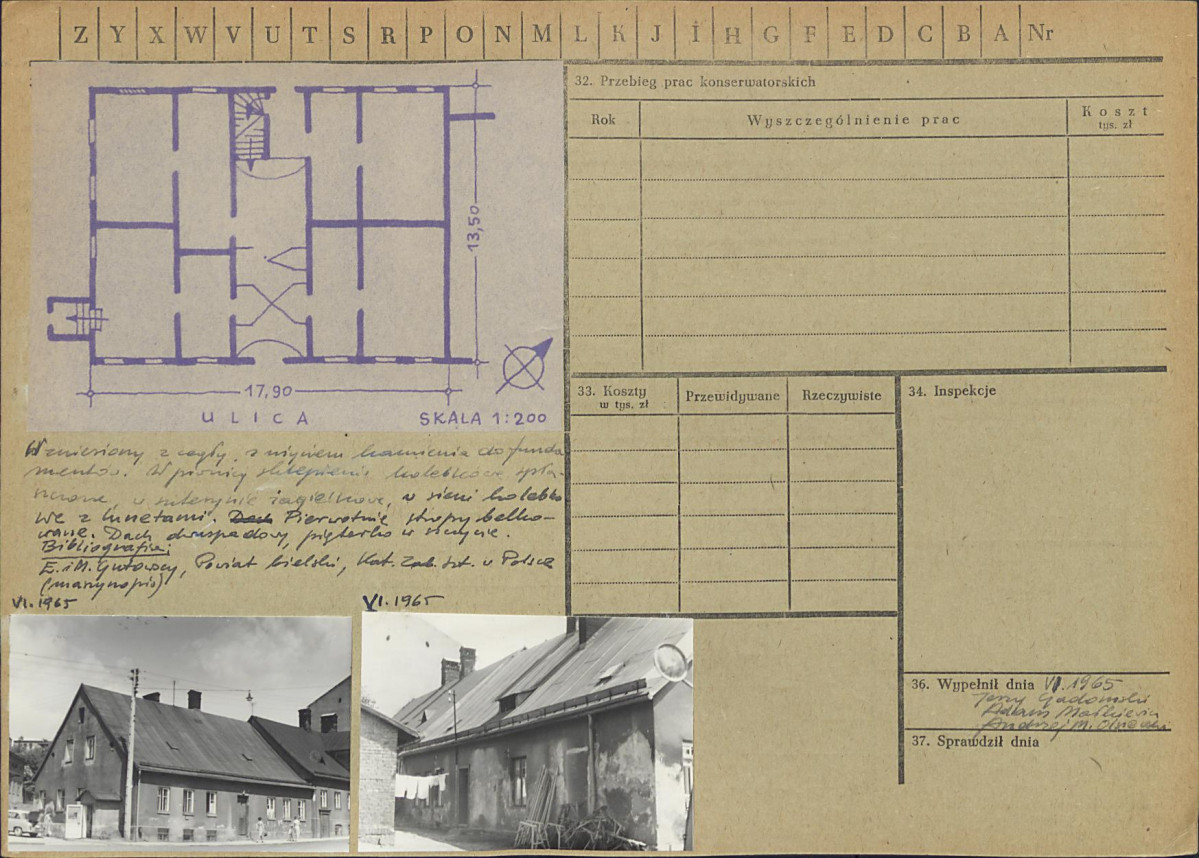 Z Y X W V U T S R P O N M L K J I H G F E D C B A Nr
13,50
17,90
ULICA
SKALA 1:200
Wzniesiony z cegły, z użyciem kamienia do funda
mentów. W piwnicy sklepienia kolebkowe spła-
szczone, w suterynie żagielkowe, w sieni kolebko
we z lunetami. Dach Pierwotnie stropy belko-
wane. Dach dwuspadowy, pięterko w szczycie.
Bibliografia:
E. i M. Gutowscy, Powiat bielski, Kat. Zab. Szt. w Polsce
(maszynopis)
VI.1965
VI.1965
32. Przebieg prac konserwatorskich
Rok
Wyszczególnienie prac
Koszt
tys. zł
33. Koszty
w tys. zł
Przewidywane
Rzeczywiste
34. Inspekcje
36. Wypełnił dnia VI.1965
Jerzy Gadomski
Adam
Andrzej M.
37. Sprawdził dnia